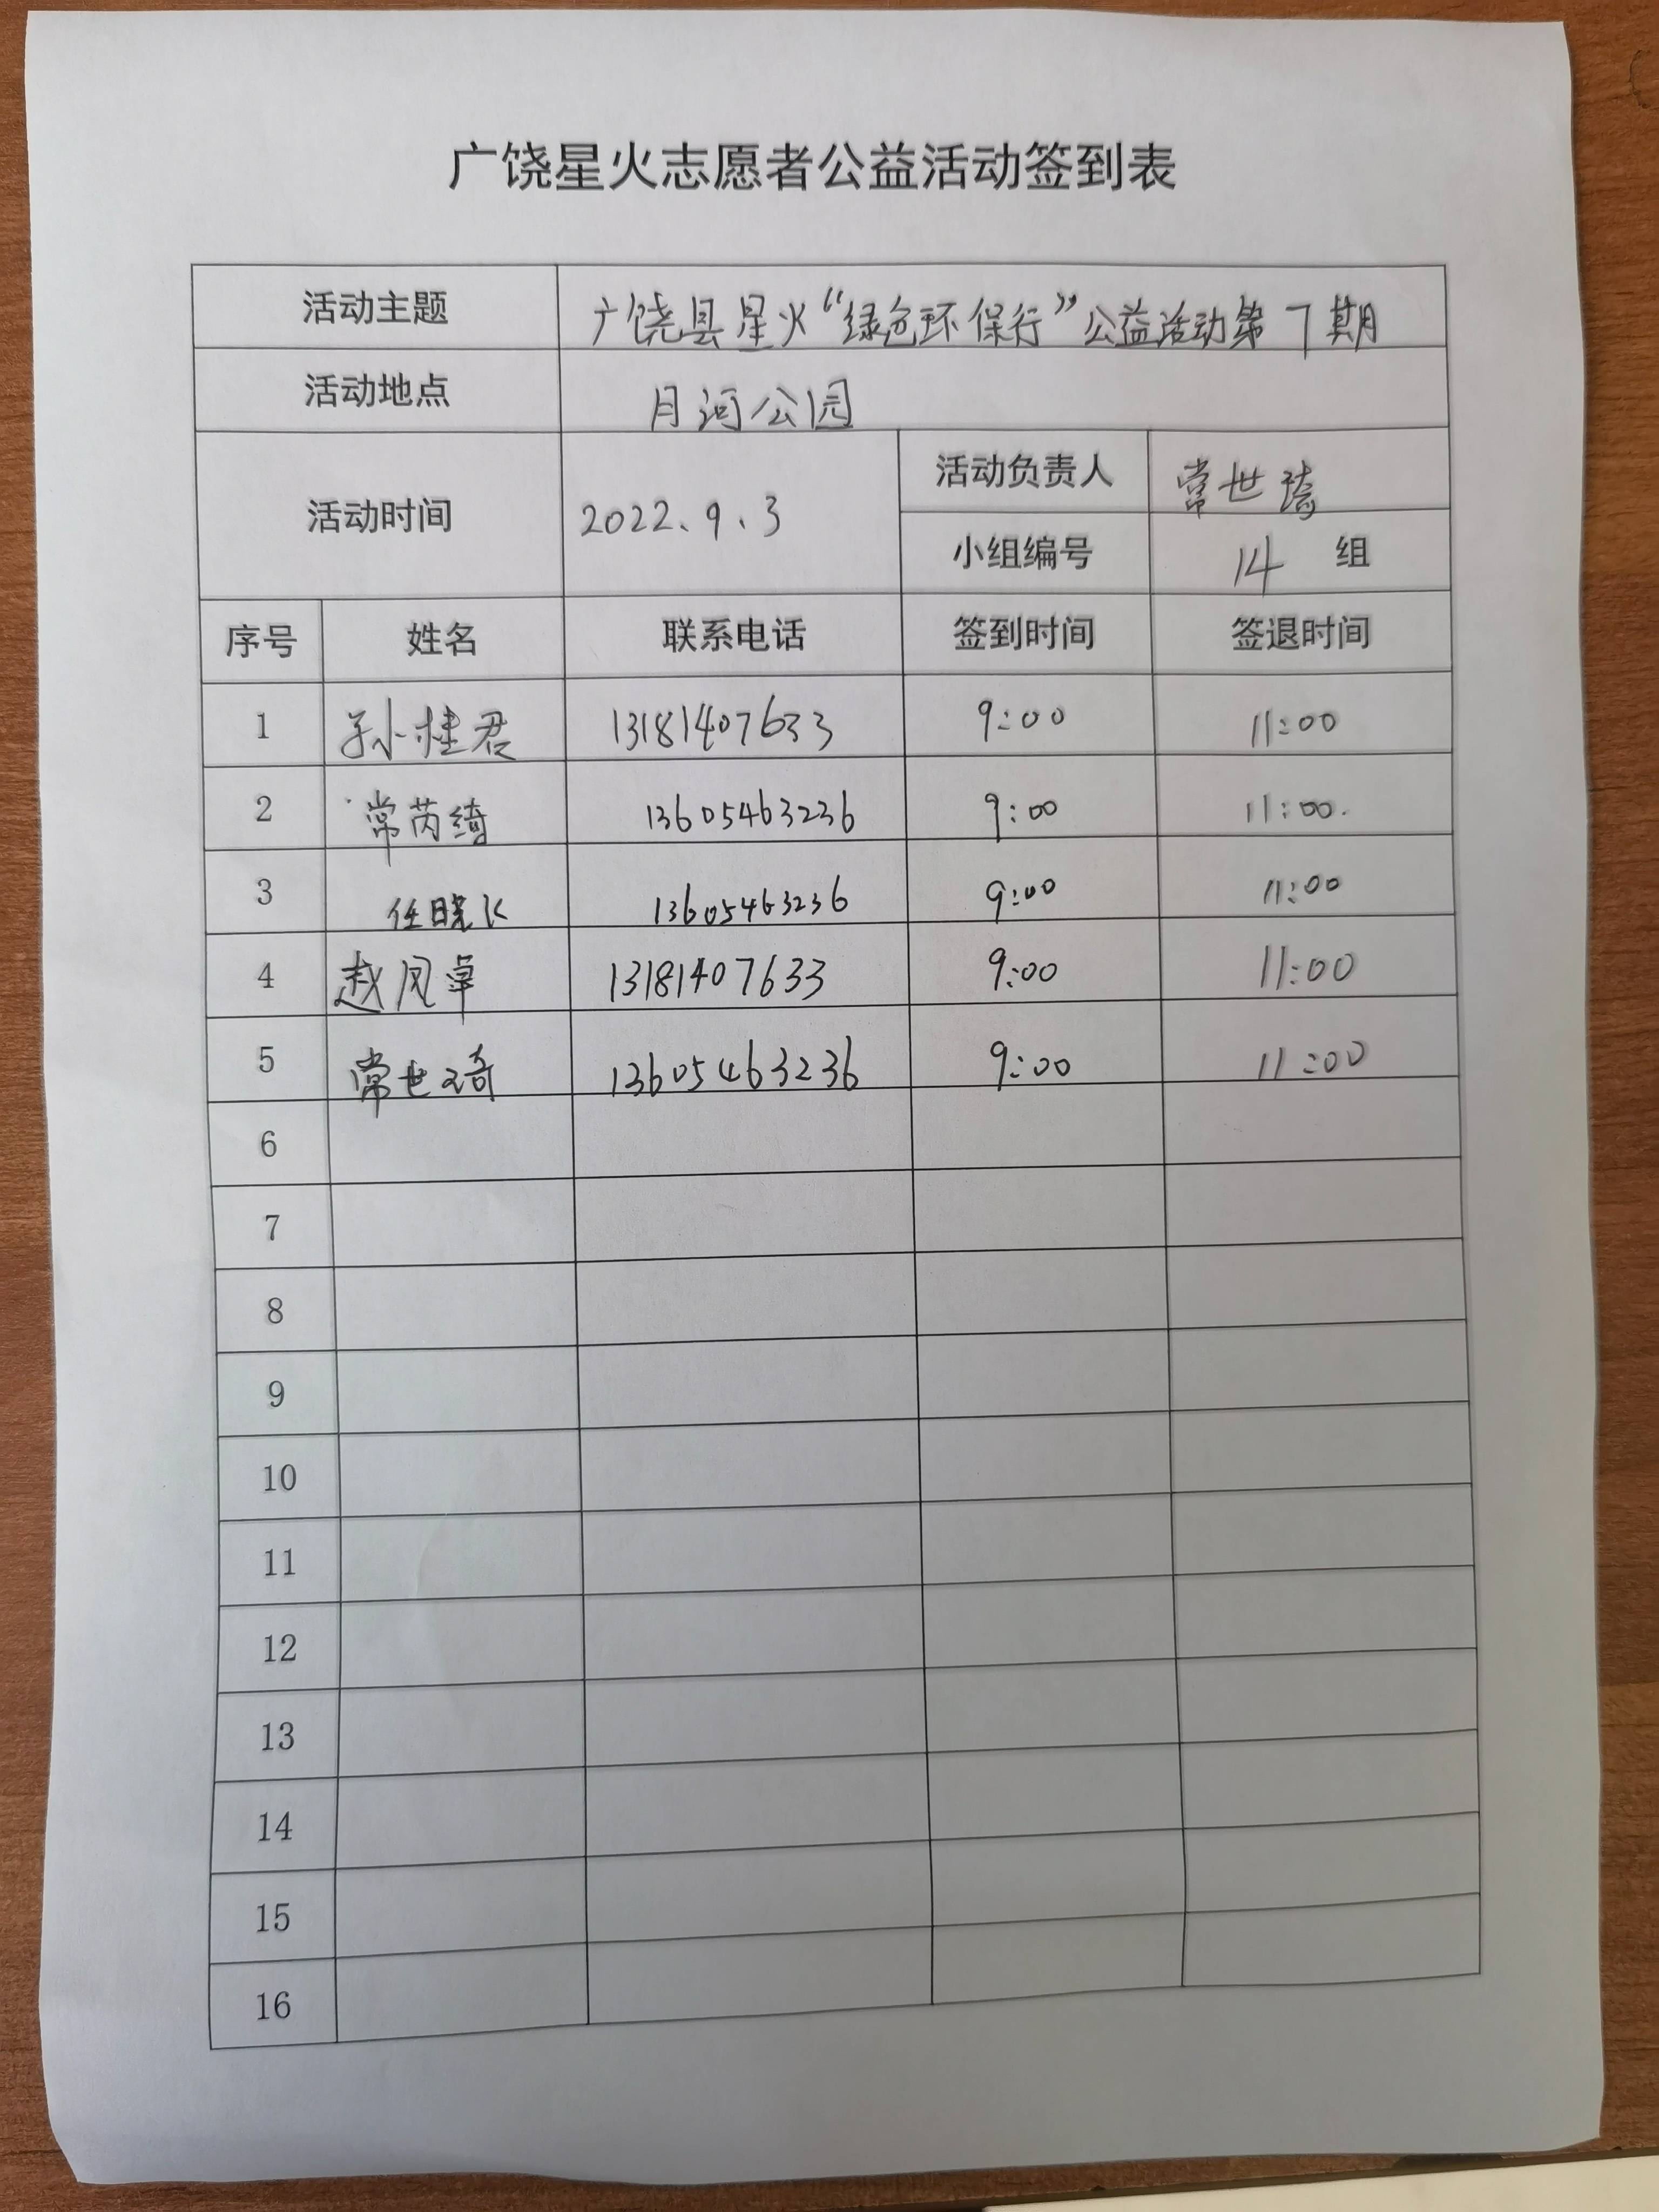 广饶星火志愿者公益活动签到表
活动主题 广饶县星火“绿色环保行”公益活动第7期
活动地点 月河公园
活动时间 2022、9、3 活动负责人 常世琦
小组编号 14 组
序号 姓名 联系电话 签到时间 签退时间
1 孙桂君 13181407633 9:00 11:00
2 常芮绮 13605463236 9:00 11:00.
3 任晓 13605463236 9:00 11:00
4 赵凤卓 13181407633 9:00 11:00
5 常世琦 13605463236 9:00 11:00
6
7
8
9
10
11
12
13
14
15
16